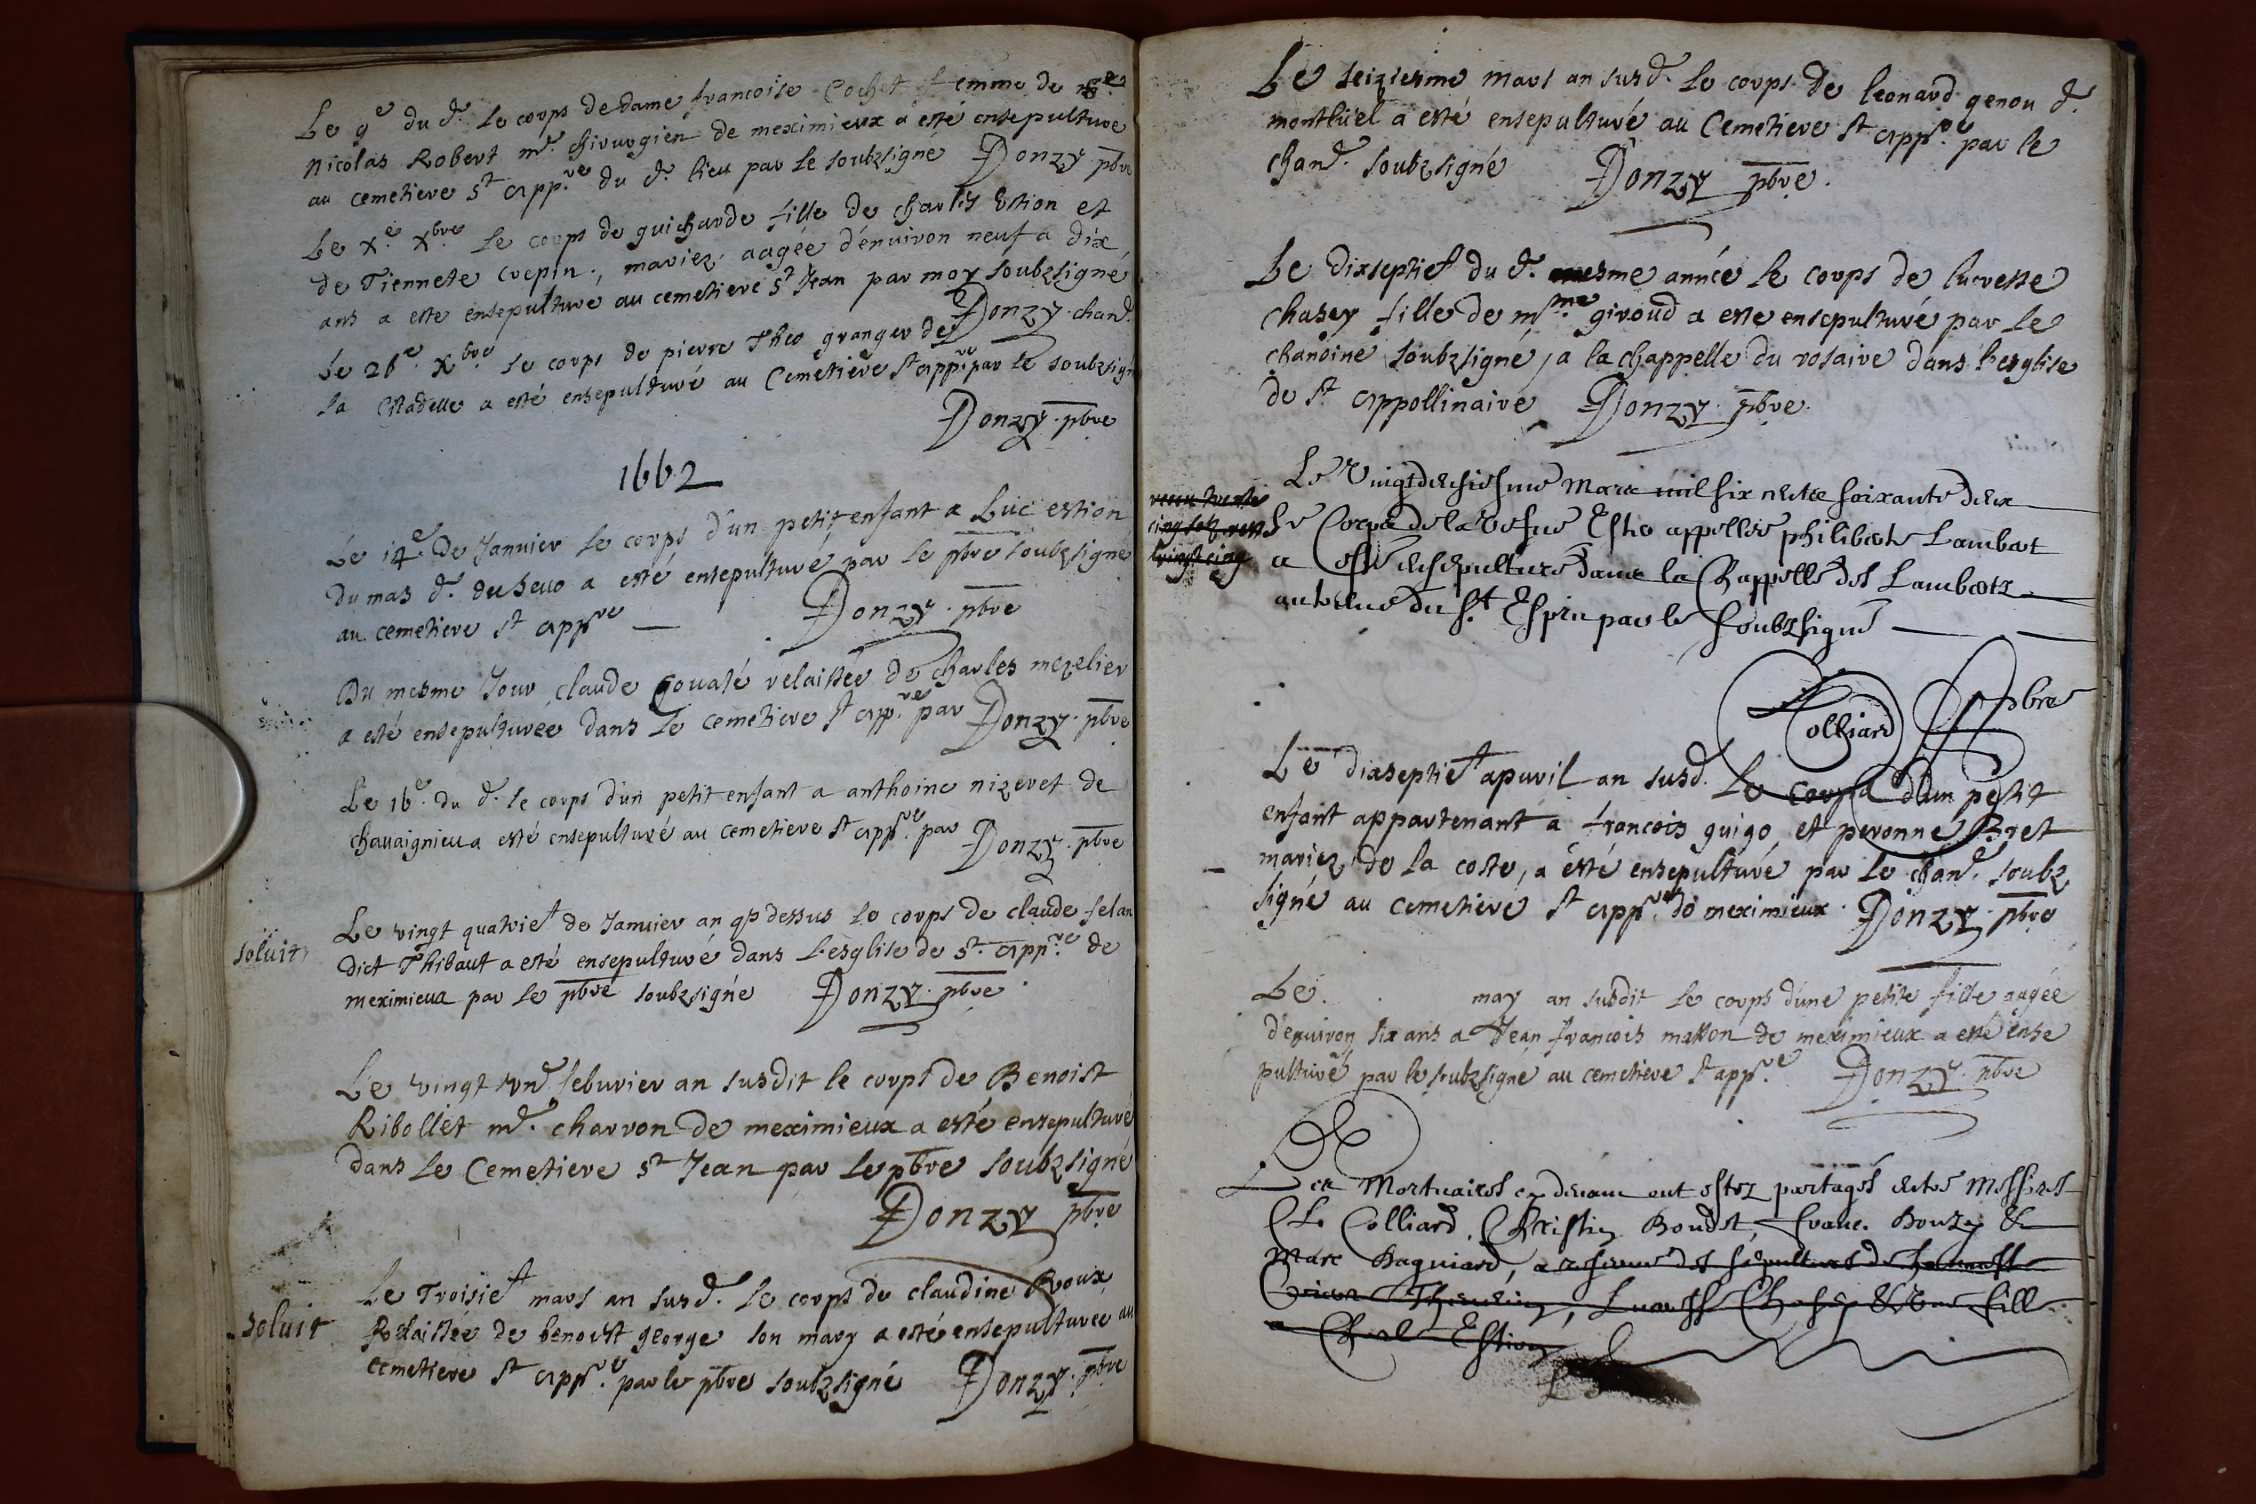 Le 9e du d. le corps de dame francoise Cochet femme de
Nicolas Robert me. chirurgien de meximieux a esté ensepulture
au cemetiere St app.re du d. lieu par le soubzsigné Donzy pbre
Le xe. xbre. le corps de guicharde fille de charles Estion et
de Tiennete Crepin, mariez, aagée d'enuiron neuf a dix
ans a esté ensepulturé au cemetiere St Jean par moy soubzsigné
Donzy chane.
Le 26e. xbre. le corps de pierre Theo granger de
la Citadelle a esté ensepulturé au Cemetiere St app.re par le soubzsigné
Donzy. pbre
1662
Le 14e. de Januier le corps d'un petit enfant a Luc estion
du mas d. a esté ensepulturé par le pbre soubzsigné
au cemetiere St appre Donzy. pbre
Du mesme Jour claude relaissée de charles mezelier
a esté ensepulturée dans le cemetiere St app.re par Donzy. pbre
Le 16e. du d. le corps d'un petit enfant a anthoine nizeret de
chauaignieu a esté ensepulturé au cemetiere St app.re par Donzy. pbre
soluit
Le vingt quatriet de Januier an q dessus le corps de claude felan
dict Thibaut a esté ensepulturé dans l'esglise de St. app.re de
meximieux par le pbre soubzsigné Donzy. pbre.
Le vingt vne. feburier an susdit le corps de Benoist
Ribollet me. charron de meximieux a esté ensepulturé
dans le Cemetiere St Jean par le pbre soubzsigné
Donzy pbre
soluit
Le Troisiet mars an susd. le corps de claudine Roux
Relaissée de benoist george son mary a esté ensepulturée au
cemetiere St app.re par le pbre soubzsigné Donzy. pbre
Le seiziesme mars an susd. le corps de leonard genou d.
montluel a esté ensepulturé au Cemetiere St app.re par le
chane. soubzsigné Donzy pbre.
Le dixseptiet du d. mesme année le corps de lucresse
chasey fille de giroud a esté ensepulturé par le
chanoine soubzsigné, a la chappelle du rosaire dans l'esglise
de St appollinaire Donzy. pbre.
Le Vingtdeusiesme Mars mil six cents soixante deux
le Corps de la vefue Theo appellée philiberte Lambert
a esté ensepulturé dans la Chappelle des Lamberts
du St Esprit par le soubzsigné
Colliard pbre
Le dixseptiet apuril an susd. le corps d'un petit
enfant appartenant a francois guigo et peronne Bret
mariez de la coste, a esté ensepulturé par le chane. soubz
signé au cemetiere St app.re de meximieux. Donzy. pbre
Le. may an susdit le corps d'une petite fille aagée
d'enuiron six ans a Jean francois masson de meximieux a esté ense
pulturé par le soubzsigné au cemetiere St app.re Donzy. pbre
Les Mortuaires cy deuant ont estez partagés entre Messires
Cl. Colliard, Christin Boudet, Franc. Donzy &
Marc Daguiard, a reserue des sepultures de
Lucresse Chasey & vne fille
a Charles Estion